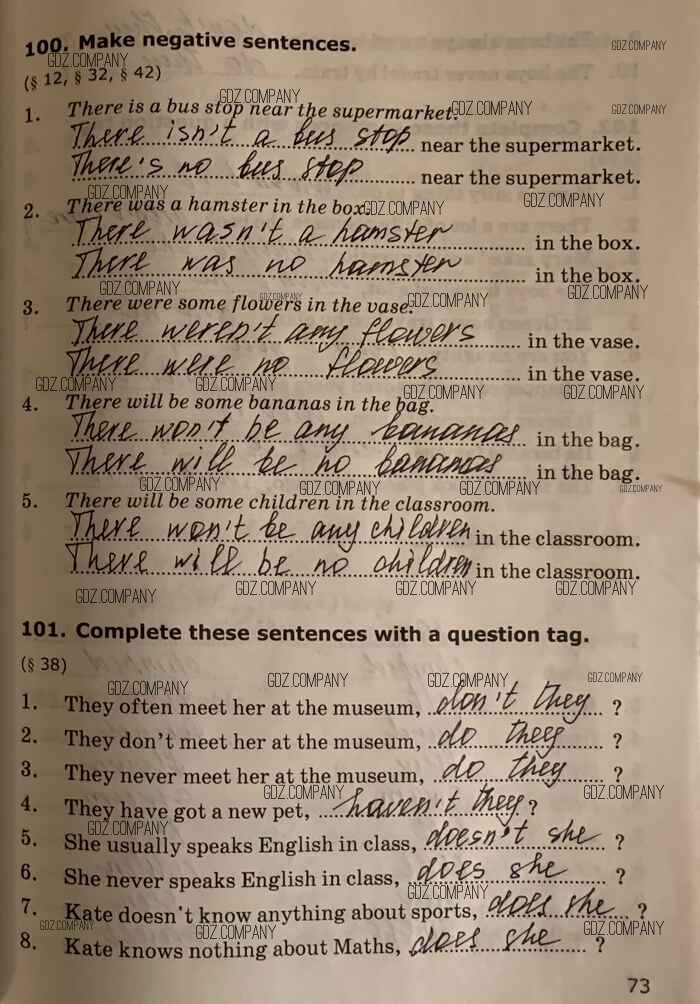 100. Make negative sentences.
(§ 12, § 32, § 42)
1. There is a bus stop near the supermarket.
There isn't a bus stop near the supermarket.
There's no bus stop near the supermarket.
2. There was a hamster in the box.
There wasn't a hamster in the box.
There was no hamster in the box.
3. There were some flowers in the vase.
There weren't any flowers in the vase.
There were no flowers in the vase.
4. There will be some bananas in the bag.
There won't be any bananas in the bag.
There will be no bananas in the bag.
5. There will be some children in the classroom.
There won't be any children in the classroom.
There will be no children in the classroom.
101. Complete these sentences with a question tag.
(§ 38)
1. They often meet her at the museum, don't they ?
2. They don't meet her at the museum, do they ?
3. They never meet her at the museum, do they ?
4. They have got a new pet, haven't they ?
5. She usually speaks English in class, doesn't she ?
6. She never speaks English in class, does she ?
7. Kate doesn't know anything about sports, does she ?
8. Kate knows nothing about Maths, does she ?
73
GDZ.COMPANY